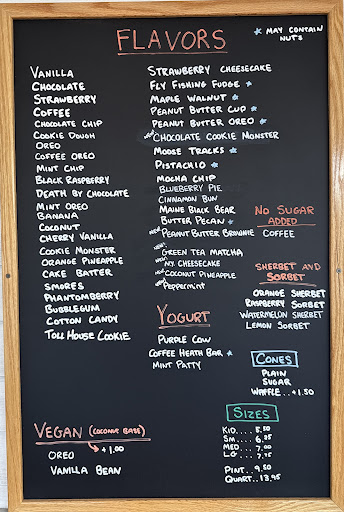 FLAVORS
* MAY CONTAIN NUTS
VANILLA
CHOCOLATE
STRAWBERRY
COFFEE
CHOCOLATE CHIP
COOKIE DOUGH
OREO
COFFEE OREO
MINT CHIP
BLACK RASPBERRY
DEATH BY CHOCOLATE
MINT OREO
BANANA
COCONUT
CHERRY VANILLA
COOKIE MONSTER
ORANGE PINEAPPLE
CAKE BATTER
SMORES
PHANTOMBERRY
BUBBLEGUM
COTTON CANDY
TOLL HOUSE COOKIE
STRAWBERRY CHEESECAKE
FLY FISHING FUDGE *
MAPLE WALNUT *
PEANUT BUTTER CUP *
PEANUT BUTTER OREO *
NEW! CHOCOLATE COOKIE MONSTER
MOOSE TRACKS *
PISTACHIO *
MOCHA CHIP
BLUEBERRY PIE
CINNAMON BUN
MAINE BLACK BEAR
BUTTER PECAN *
NEW! PEANUT BUTTER BROWNIE
NEW! GREEN TEA MATCHA
NEW! NY CHEESECAKE
NEW! COCONUT PINEAPPLE
NEW! PEPPERMINT
YOGURT
PURPLE COW
COFFEE HEATH BAR *
MINT PATTY
NO SUGAR
ADDED
COFFEE
SHERBET AND
SORBET
ORANGE SHERBET
RASPBERRY SORBET
WATERMELON SHERBET
LEMON SORBET
CONES
PLAIN
SUGAR
WAFFLE..+1.50
SIZES
KID.... 5.50
SM... 6.25
MED... 7.00
LG... 7.75
PINT.. 9.50
QUART..13.95
VEGAN (COCONUT BASE)
+1.00
OREO
VANILLA BEAN